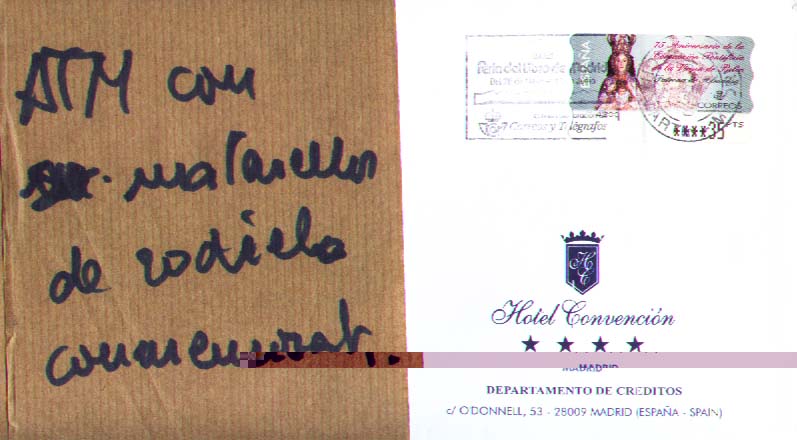 ATM con
matasellos
de rodillo
conmemorat.
Feria del Libro de Madrid
Correos y Telégrafos
ESPAÑA
75 Aniversario de la
Coronación Pontificia
de la Virgen de
CORREOS
****35 PTS
H C
Hotel Convención
MADRID
DEPARTAMENTO DE CREDITOS
c/ O'DONNELL, 53 - 28009 MADRID (ESPAÑA - SPAIN)